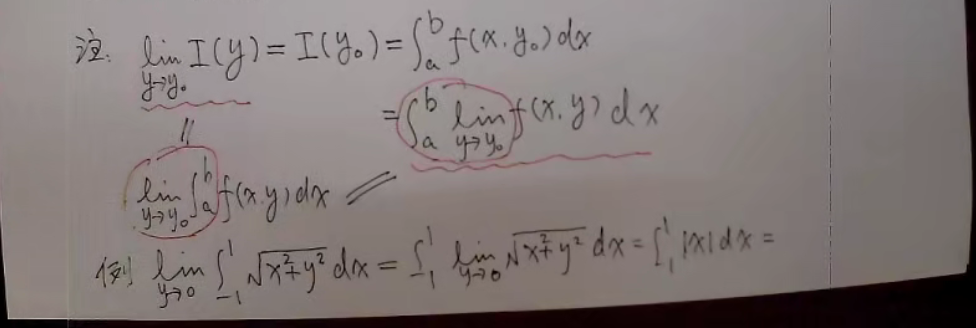 注: lim_{y→y₀} I(y) = I(y₀) = ∫_a^b f(x.y₀) dx
= ∫_a^b lim_{y→y₀} f(x.y) dx
||
lim_{y→y₀} ∫_a^b f(x.y) dx //
例 lim_{y→0} ∫_{-1}^1 √(x²+y²) dx = ∫_{-1}^1 lim_{y→0} √(x²+y²) dx = ∫_{-1}^1 |x| dx =